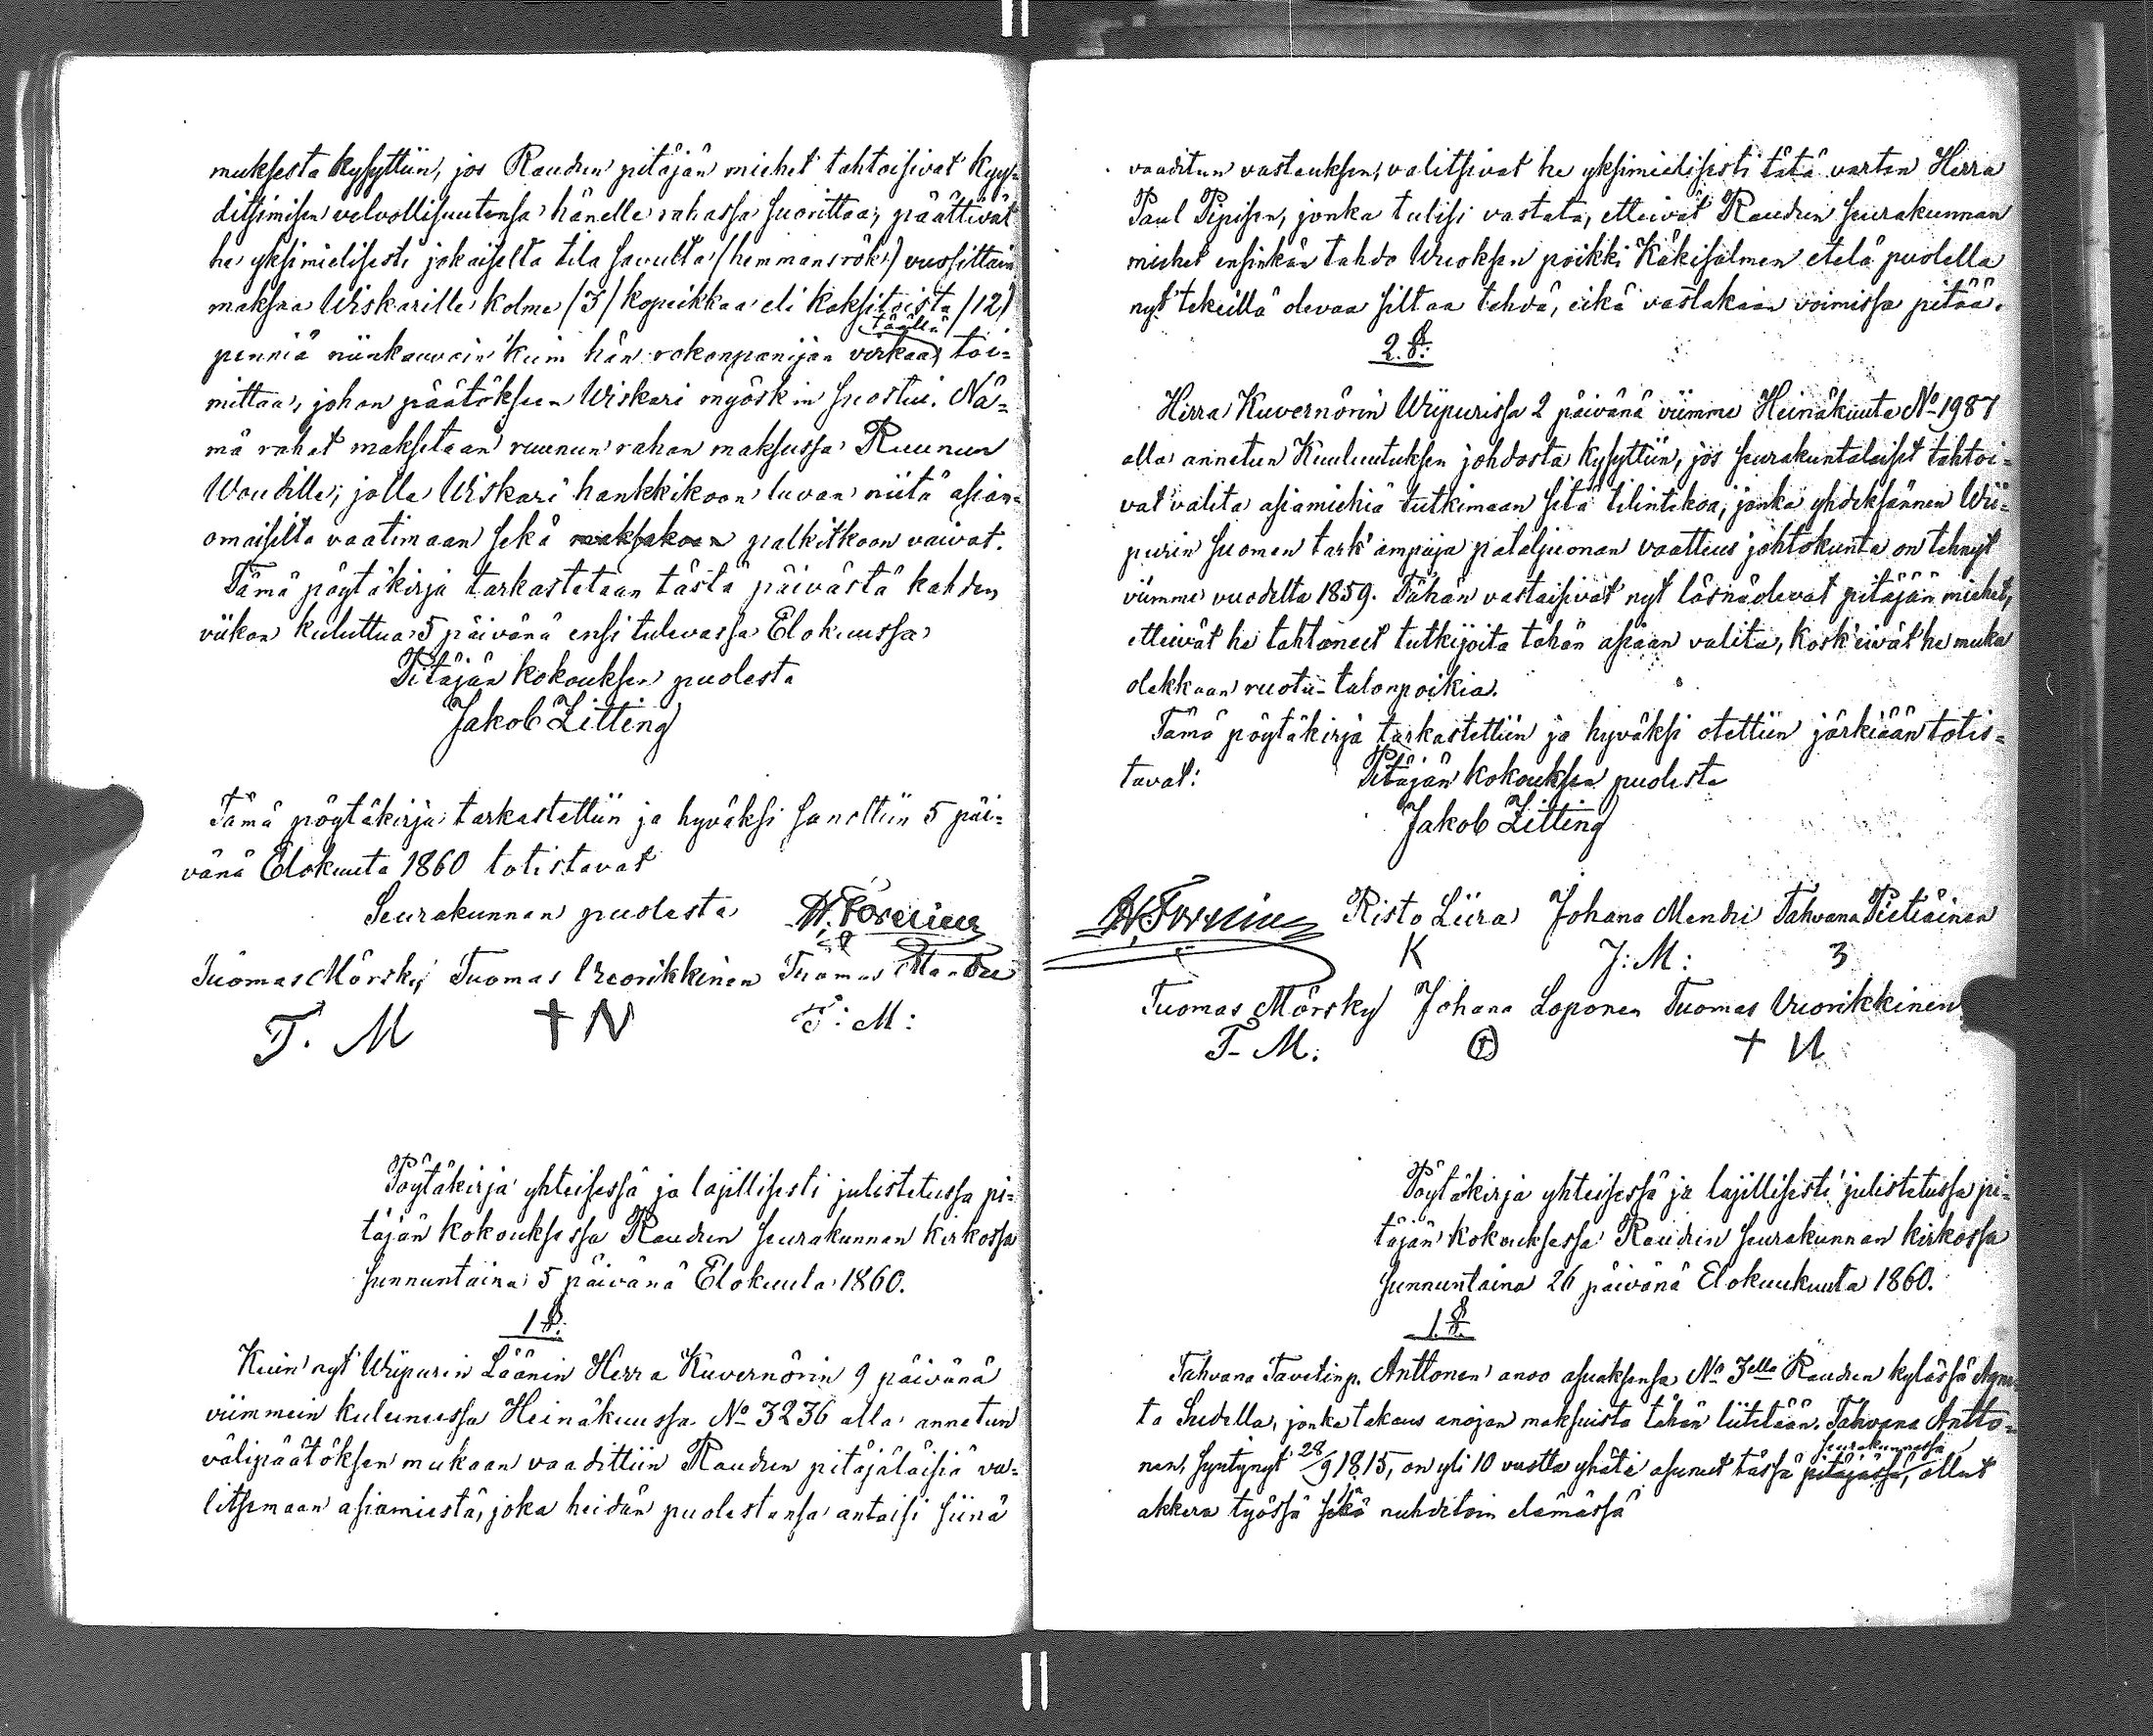 muksesta kysyttiin, jos Raudun pitäjän miehet tahtoisivat kyy-
ditsimisen velvollisuutensa hänelle rahassa suorittaa; päättivät
he yksimielisesti jokaiselta tila savulta (hemmansrök) vuosittain
maksaa Wiskarille kolme /3/ kopeikkaa eli kaksitoista /12/
täällä
penniä niinkauvain kuin hän rokonpanijan virkaa toi=
mittaa, johon päätökseen Wiskari myöskin suostui. Nä=
mä rahat maksetaan ruunun rahan maksussa Ruunun
Woudille; jolla Wiskari hankkikoon luvan niitä asian=
omaisilta vaatimaan sekä maksakoon palkitkoon vaivat.
Tämä pöytäkirja tarkastetaan tästä päivästä kahden
viikon kuluttua 5 päivänä ensi tulevassa Elokuussa
Pitäjän kokouksen puolesta
Jakob Zitting
Tämä pöytäkirja tarkastettiin ja hyväksi sanottiin 5 päi=
vänä Elokuuta 1860 totistavat
Seurakunnan puolesta
Tuomas Mörsky Tuomas Vuorikkinen Tuomas Mandri
T. M + N T: M:
Pöytäkirja yhteisessä ja lajillisesti julistetussa pi=
täjän kokouksessa Raudun seurakunnan kirkossa
sunnuntaina 5 päivänä Elokuuta 1860.
1 §:
Kuin nyt Wiipurin Läänin Herra Kuvernörin 9 päivänä
viimmein kuluneessa Heinäkuussa No 3236 alla annetun
välipäätöksen mukaan vaadittiin Raudun pitäjäläisiä va=
litsemaan asiamiestä, joka heidän puolestansa antaisi siinä
vaaditun vastauksen; valitsivat he yksimielisesti tätä varten Herra
Paul Pepisen, jonka tulisi vastata, etteivät Raudun seurakunnan
miehet ensinkän tahdo Wuoksen poikki Käkisalmen etelä puolella
nyt tekeillä olevaa siltaa tehdä, eikä vastakaan voimissa pitää.
2. §:
Herra Kuvernörin Wiipurissa 2 päivänä viimme Heinäkuuta No 1987
alla annetun Kuuluutuksen johdosta kysyttiin, jos seurakuntalaiset tahtoi=
vat valita asiamiehiä tutkimaan sitä tilintekoa, jonka yhdeksännen Wii=
purin suomen tark'ampuja pataljuonan vaatteus johtokunta on tehnyt
viimme vuodelta 1859. Tähän vastaisivat nyt läsnäolevat pitäjän miehet,
etteivät he tahtoneet tutkijoita tähän asiaan valita, kosk'eivät he muka
olekkaan ruotu-talonpoikia.
Tämä pöytäkirja tarkastettiin ja hyväksi otettiin järkiään totis=
tavat: Pitäjän kokouksen puolesta
Jakob Zitting
Risto Liira Johana Mendri Tahvana Pietiäinen
K J: M: 3
Tuomas Mörsky Johana Loponen Tuomas Vuorikkinen
T- M: + N
Pöytäkirja yhteisessä ja lajillisesti julistetussa pi=
täjän kokouksessa Raudun seurakunnan kirkossa
sunnuntaina 26 päivänä Elokuukuuta 1860.
1 §
Tahvana Tavetinp. Anttonen anoo asuaksensa No 3ella Raudun kylässä
ta Sudella, jonka takaus anojan maksuista tähän liitetään. Tahvana Antto=
seurakunnassa
nen, syntynyt 28/9 1815, on yli 10 vuotta yhäti asunut tässä pitäjässä, ollut
akkera työssä sekä nuhditoin elämässä